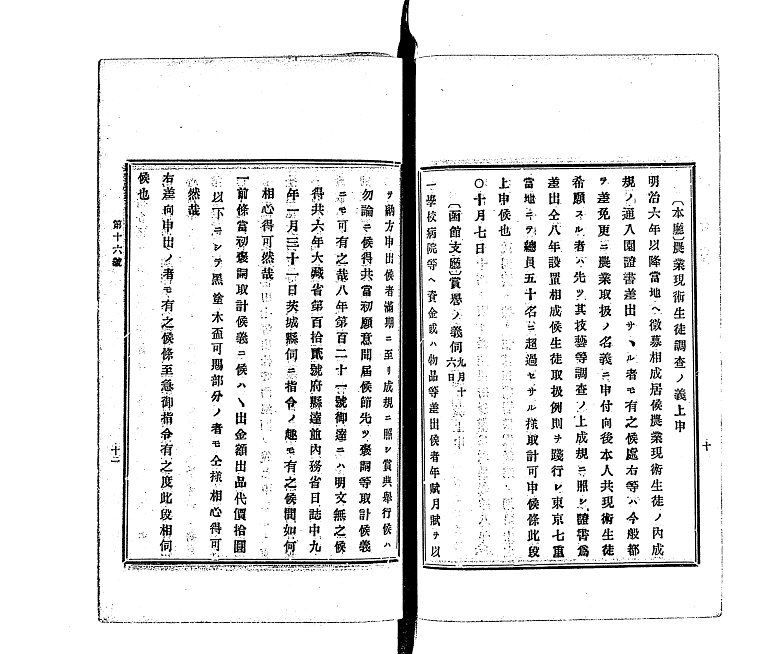 〔本廳〕農業現術生徒調査ノ義上申
明治六年以降當地ヘ徴募相成居候農業現術生徒ノ內成
規ノ通入園證書差出サヽル者モ有之候處右等ハ今般都
テ差免更ニ農業取扱ノ名義ニ申付向後本人共現術生徒
希願スル者ハ先ツ其技藝等調査ノ上成規ニ照シ證書爲
差出仝八年設置相成候生徒取扱例則ヲ踐行シ東京七重
當地ニテ總員五十名ニ超過セサル樣取計可申候條此段
上申候也
〇十月七日
〔函館支廳〕賞譽ノ義伺九月十六日
一學校病院等ヘ資金或ハ物品等差出候者年賦月賦ヲ以
十
テ納方申出候者滿期ニ至リ成規ニ照シ賞典擧行候ハ
勿論ニ候得共當初願意聞屆候節先ツ褒詞等取計候義
ニモ可有之哉八年第百二十一號御達ニハ明文無之候
得共六年大藏省第百拾貳號府縣達並內務省日誌中九
年一月三十一日茨城縣伺ニ指令ノ趣モ有之候間如何
相心得可然哉
一前條當初褒詞取計候義ニ候ハヽ出金額出品代價拾圓
以下ニシテ黑塗木盃可賜部分ノ者モ仝樣相心得可
然哉
右差向申出ノ者モ有之候條至急御指令有之度此段相伺
候也
第十六號
十二